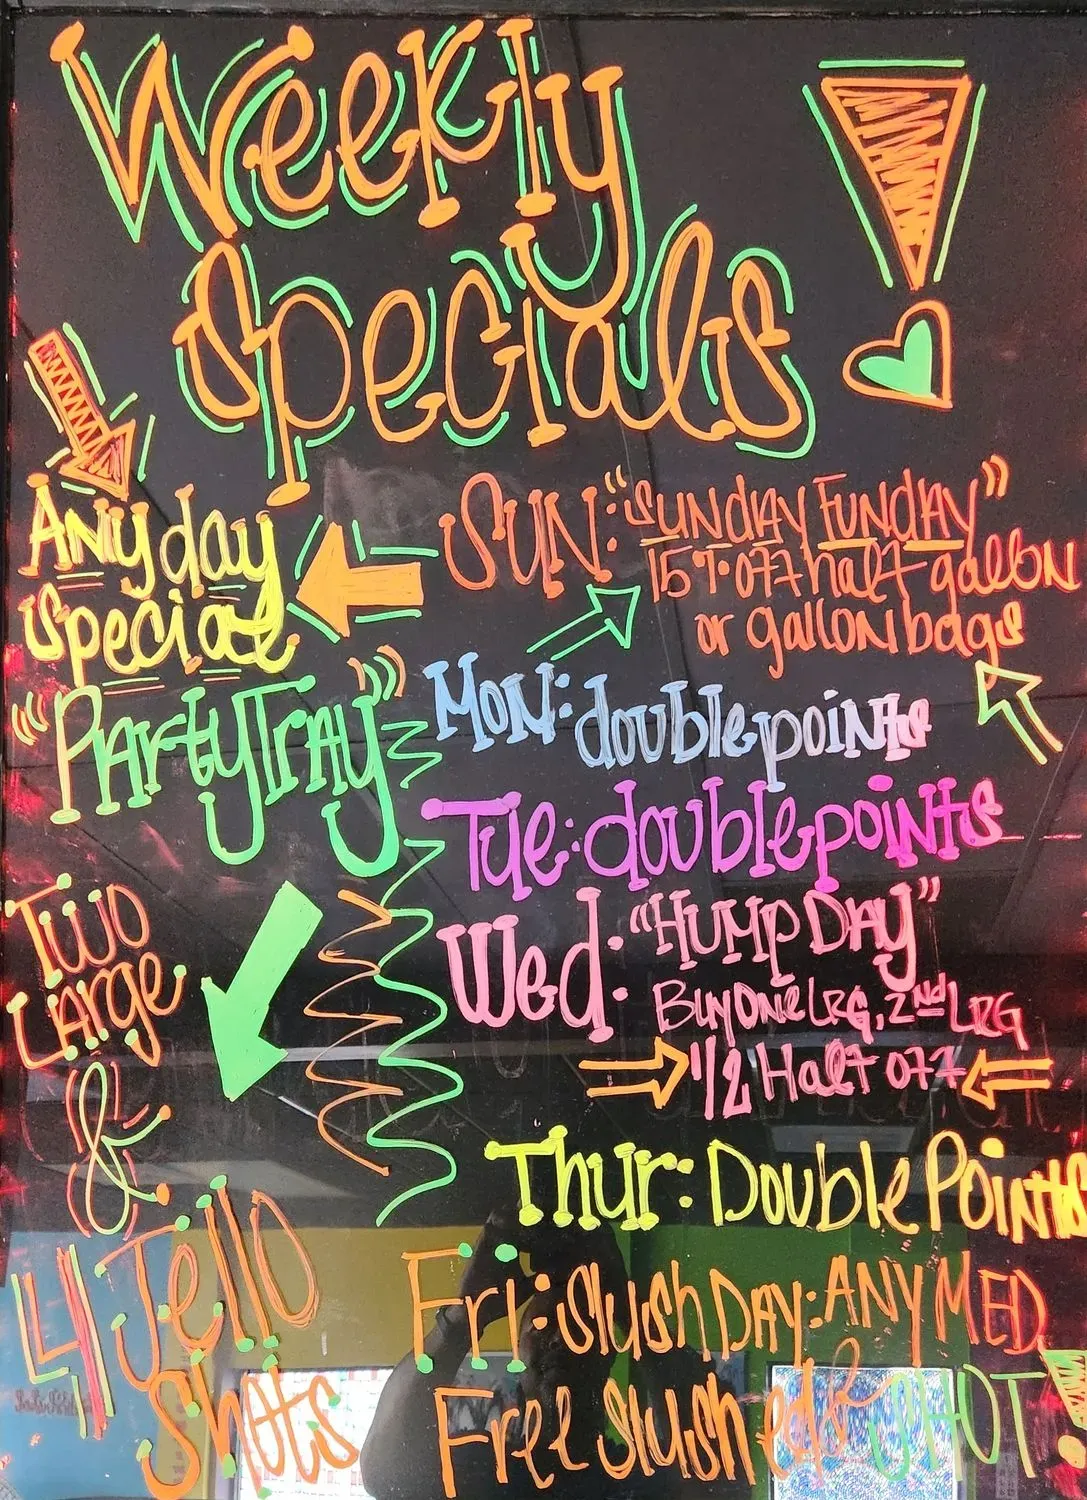 Weekly
Specials
Any day
Special
"Party Tray"
Two
Large
&
4 Jello
Shots
SUN: "SUNDAY FUNDAY"
15% off half gallon
or gallon bags
MON: double points
Tue: double points
Wed: "HUMP DAY"
Buy One LRG, 2nd LRG
1/2 Half off
Thur: Double Points
Fri: Slush DAY: ANY MED
Free Slush &
SHOT!